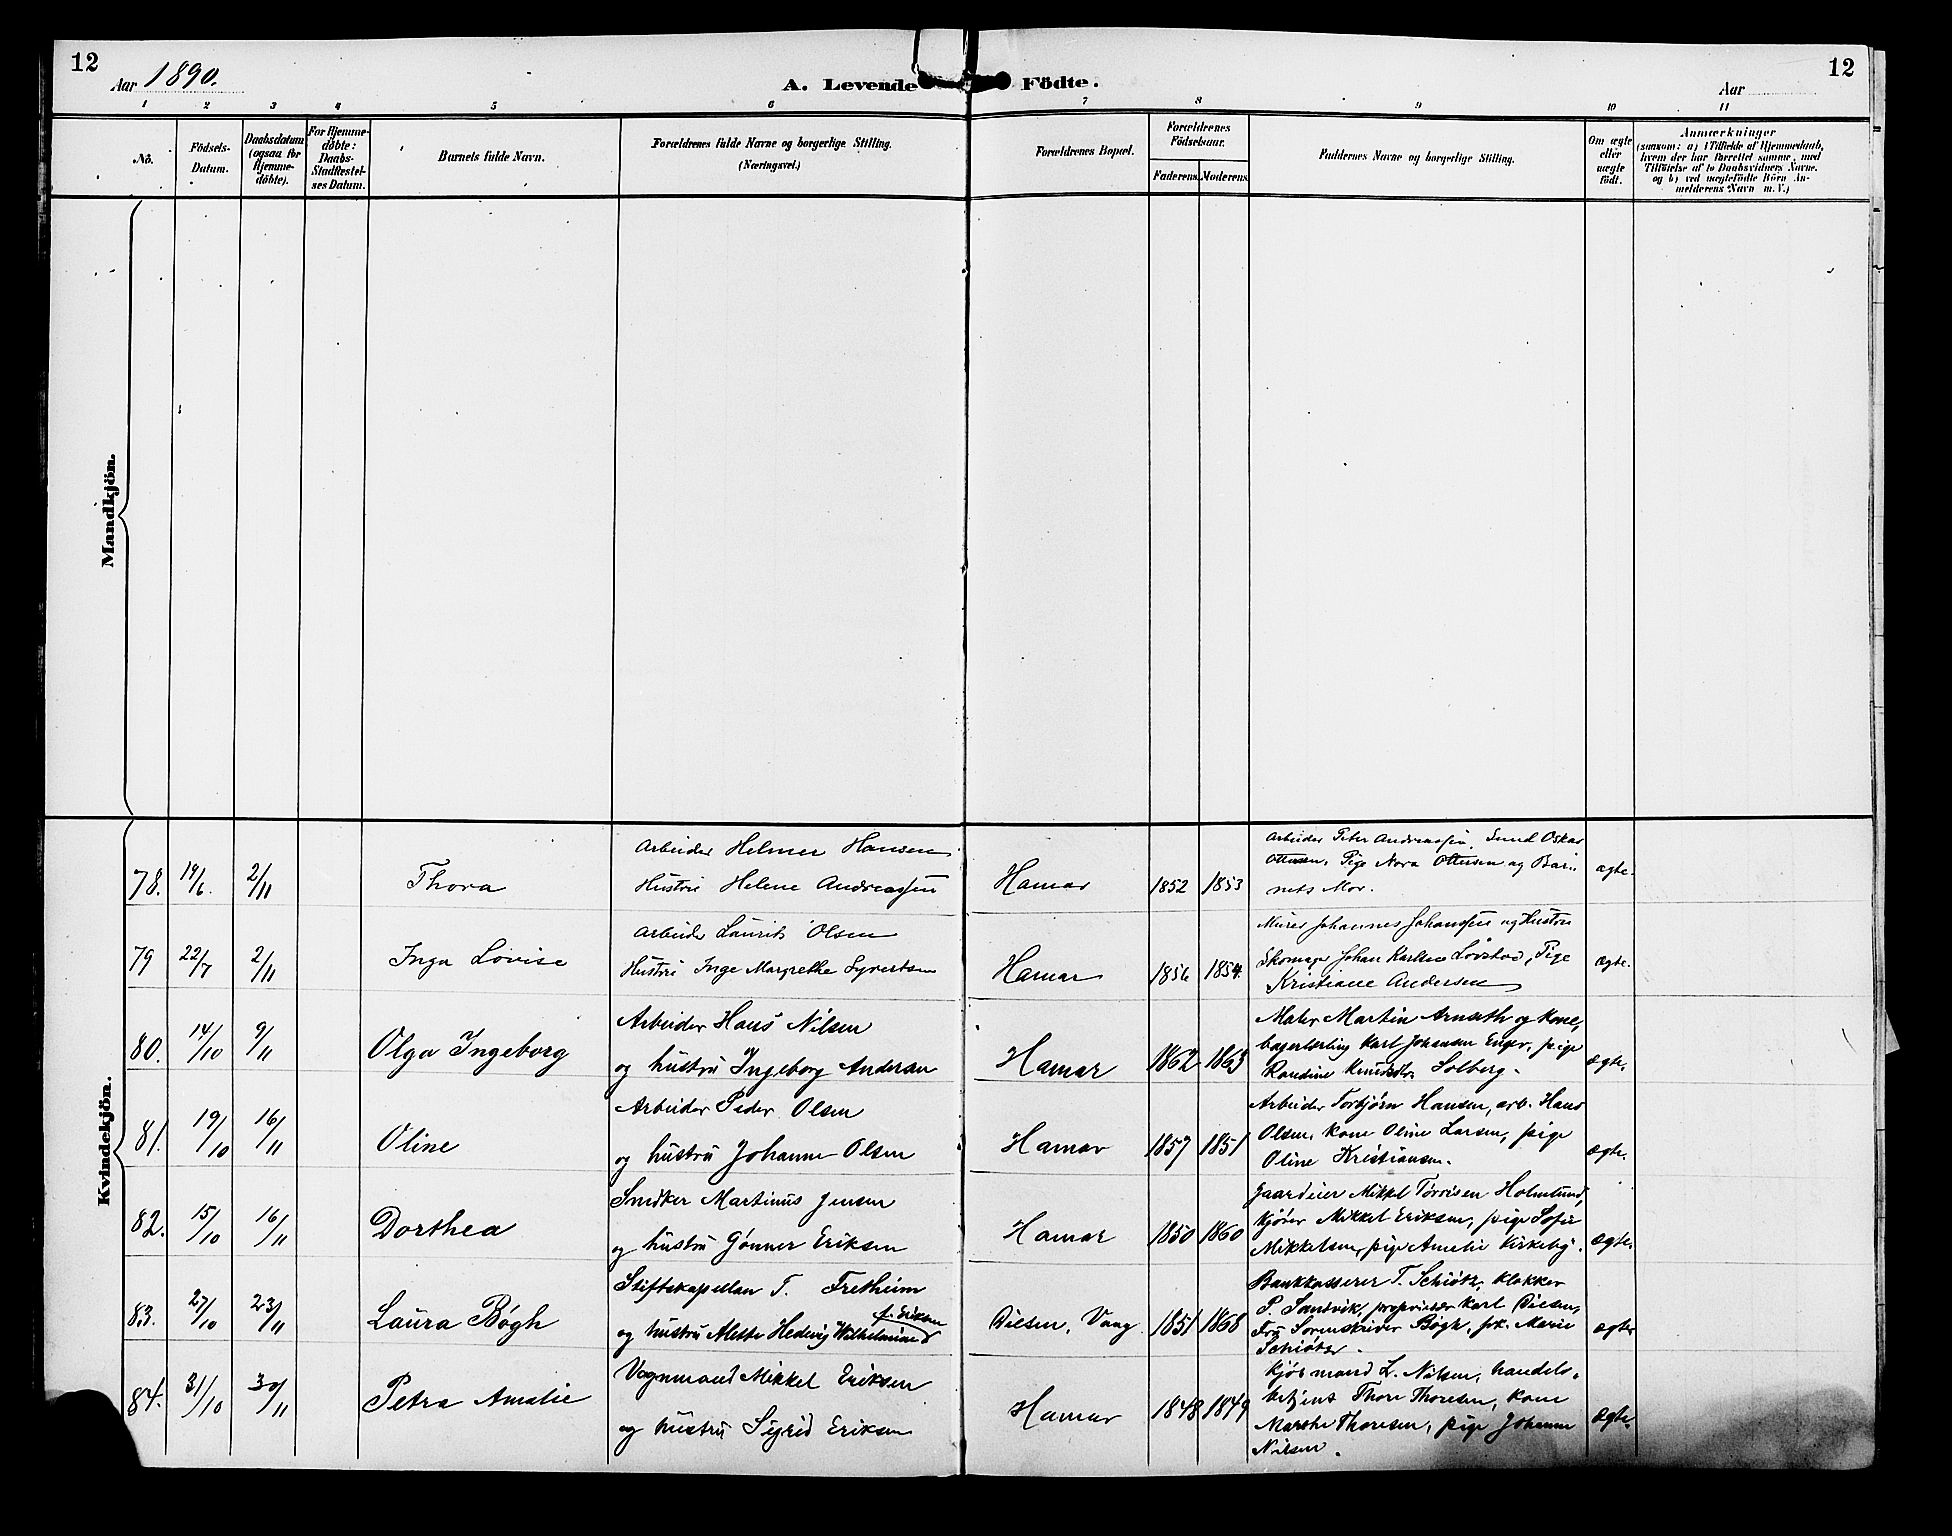 12
12
Aar 1890.
A. Levende Födte.
Aar
1 2 3 4 5 6 7 8 9 10 11
No.
Födsels-
Datum.
Daabsdatum
(ogsaa for
Hjemme-
döbte).
For Hjemme-
döbte:
Daabs-
Stadfæstel-
ses Datum.
Barnets fulde Navn.
Forældrenes fulde Navne og borgerlige Stilling.
(Næringsvei.)
Forældrenes Bopæl.
Forældrenes
Födselsaar.
Faderens.
Moderens.
Faddernes Navne og borgerlige Stilling.
Om ægte
eller
uægte
födt.
Anmærkninger
(saasom: a) i Tilfælde af Hjemmedaab,
hvem der har forrettet samme, med
Tilföielse af to Daabsvidners Navne.
og b) ved uægtefödte Börn An-
melderens Navn m. V.)
Mandkjön.
Kvindekjön.
78. 19/6. 2/11
Thora
Arbeider Helmer Hansen
Hustru Helene Andreassen
Hamar
1852 1853
Arbeider Peter Andreassen, Svend Oskar
Ottersen, Pige Nora Ottersen og Bar-
nets Mor.
ægte.
79 22/7 2/11
Inga Lovise
Arbeider Laurits Olsen
Hustru Inge Margrethe Syvertsen
Hamar
1856 1854.
Murer Johannes Johansen og Hustru
Skomager Johan Karlsen Lövstad, Pige
Kristiane Andersen
ægte.
80. 14/10 9/11
Olga Ingeborg
Arbeider Hans Nilsen
og hustru Ingeborg Andersen
Hamar
1862 1863
Maler Martin Arneseth og kone,
bagerlærling Karl Johansen Enger, pige
Randine Knudsdtr. Solberg.
ægte.
81. 19/10 16/11
Oline
Arbeider Peder Olsen
og hustru Johanne Olsen
Hamar
1857 1851
Arbeider Torbjörn Hansen, arb. Hans
Olsen, kone Oline Larsen, pige
Oline Kristiansen.
ægte.
82. 15/10 16/11
Dorthea
Snedker Martinus Jensen
og hustru Gönner Eriksen
Hamar
1850 1860
Gaardeier Mikkel Torrisen Holmlund,
kjörer Mikkel Eriksen, pige Sofie
Mikkelsen, pige Amelie Kirkeby.
ægte.
83. 27/10 23/11
Laura Bøgh
Stiftskapellan T. Fretheim
og hustru Alette Hedevig Wilhelmine
f. Eriksen
Diesen, Vang
1851 1868
Bankkasserer T. Schiøtz, klokker
P. Sandvik, proprietær Karl Diesen,
Fru Sorenskriver Bøgh, frk. Marie
Schiøtz.
ægte
84. 31/10 30/11
Petra Amalie
Vognmand Mikkel Eriksen
og hustru Sigrid Eriksen
Hamar
1848 1849
Kjøbmand L. Nilsen, handels-
betjent Thore Thoresen, kone
Marthe Thoresen, pige Johanne
Nilsen.
ægte.